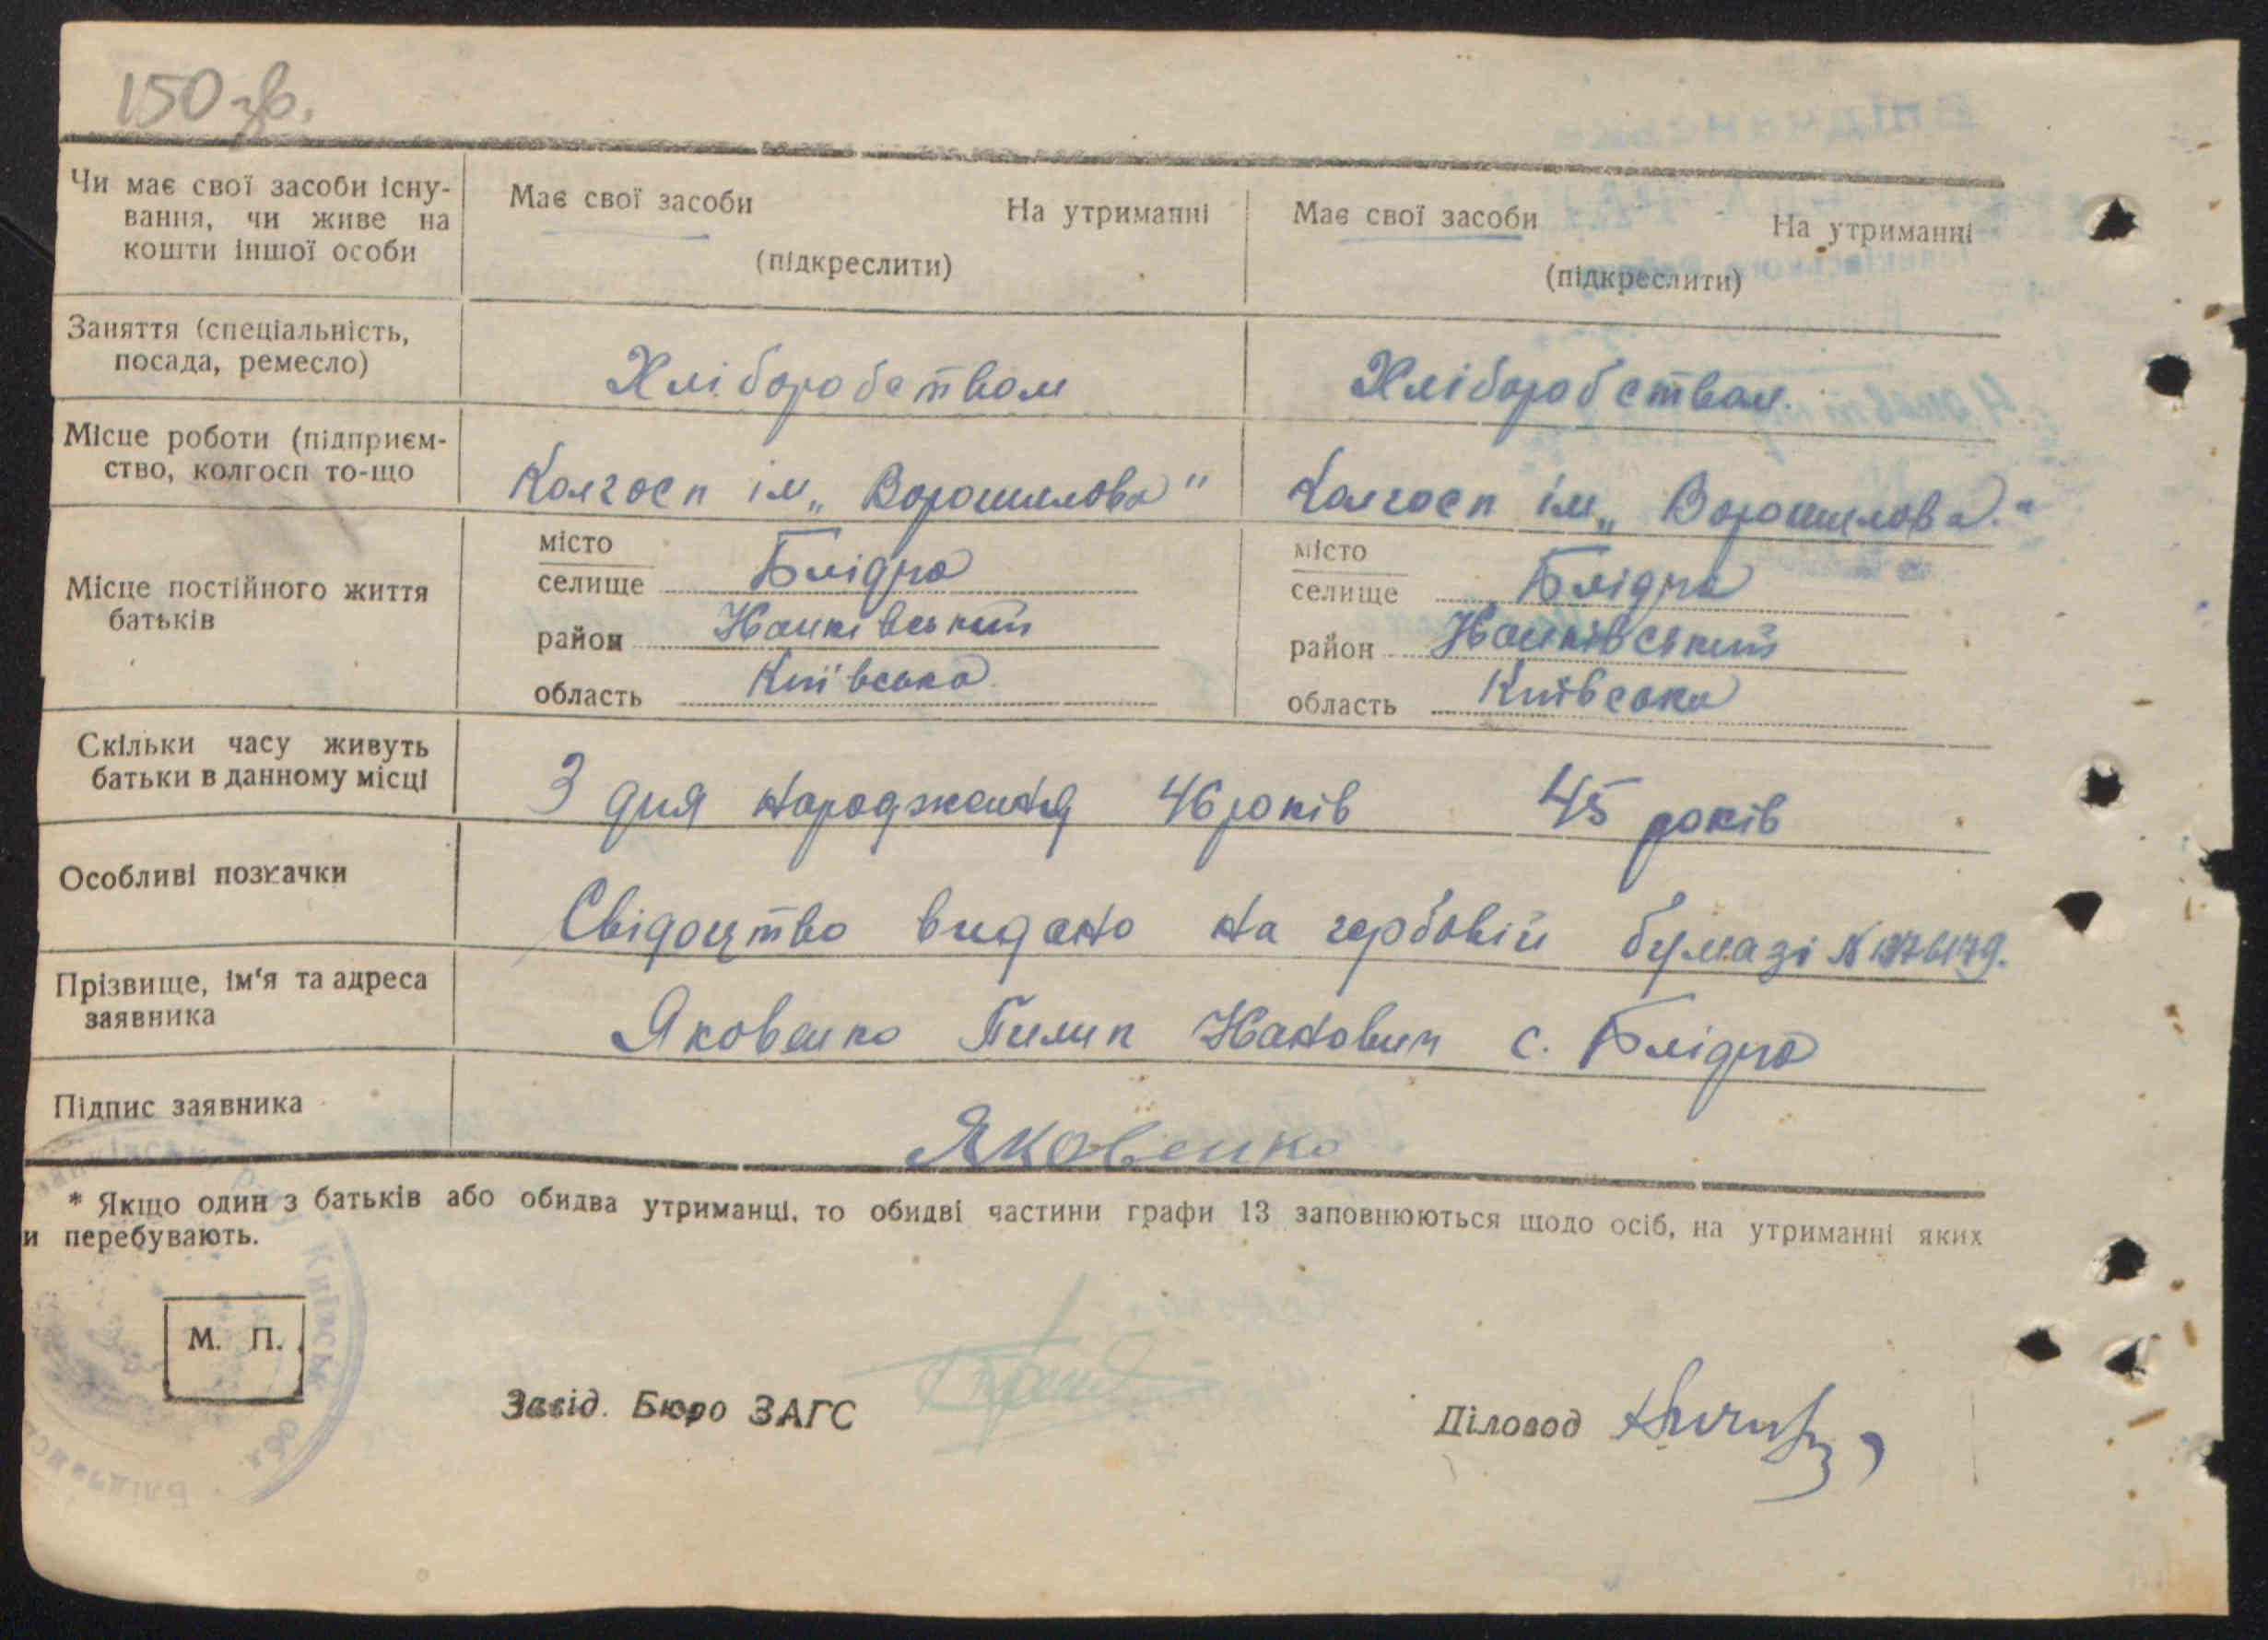 150 зв.
Чи має свої засоби існу-
вання, чи живе на
кошти іншої особи
Має свої засоби На утриманні
(підкреслити)
Має свої засоби На утриманні
(підкреслити)
Заняття (спеціальність,
посада, ремесло)
Хліборобством
Хліборобством.
Місце роботи (підприєм-
ство, колгосп то-що
Колгосп ім „Ворошилова"
Колгосп ім „Ворошилова."
Місце постійного життя
батьків
місто
селище Блідча
район
область Київська
місто
селище Блідча
район
область Київська
Скільки часу живуть
батьки в данному місці
З дня народження 46 років 45 років
Особливі позначки
Свідоцтво видано на гербовій бумазі №
Прізвище, ім'я та адреса
заявника
Яковенко Пилип с. Блідча
Підпис заявника
Яковенко
* Якщо один з батьків або обидва утриманці, то обидві частини графи 13 заповнюються щодо осіб, на утриманні яких
и перебувають.
М. П.
Завід. Бюро ЗАГС
Діловод